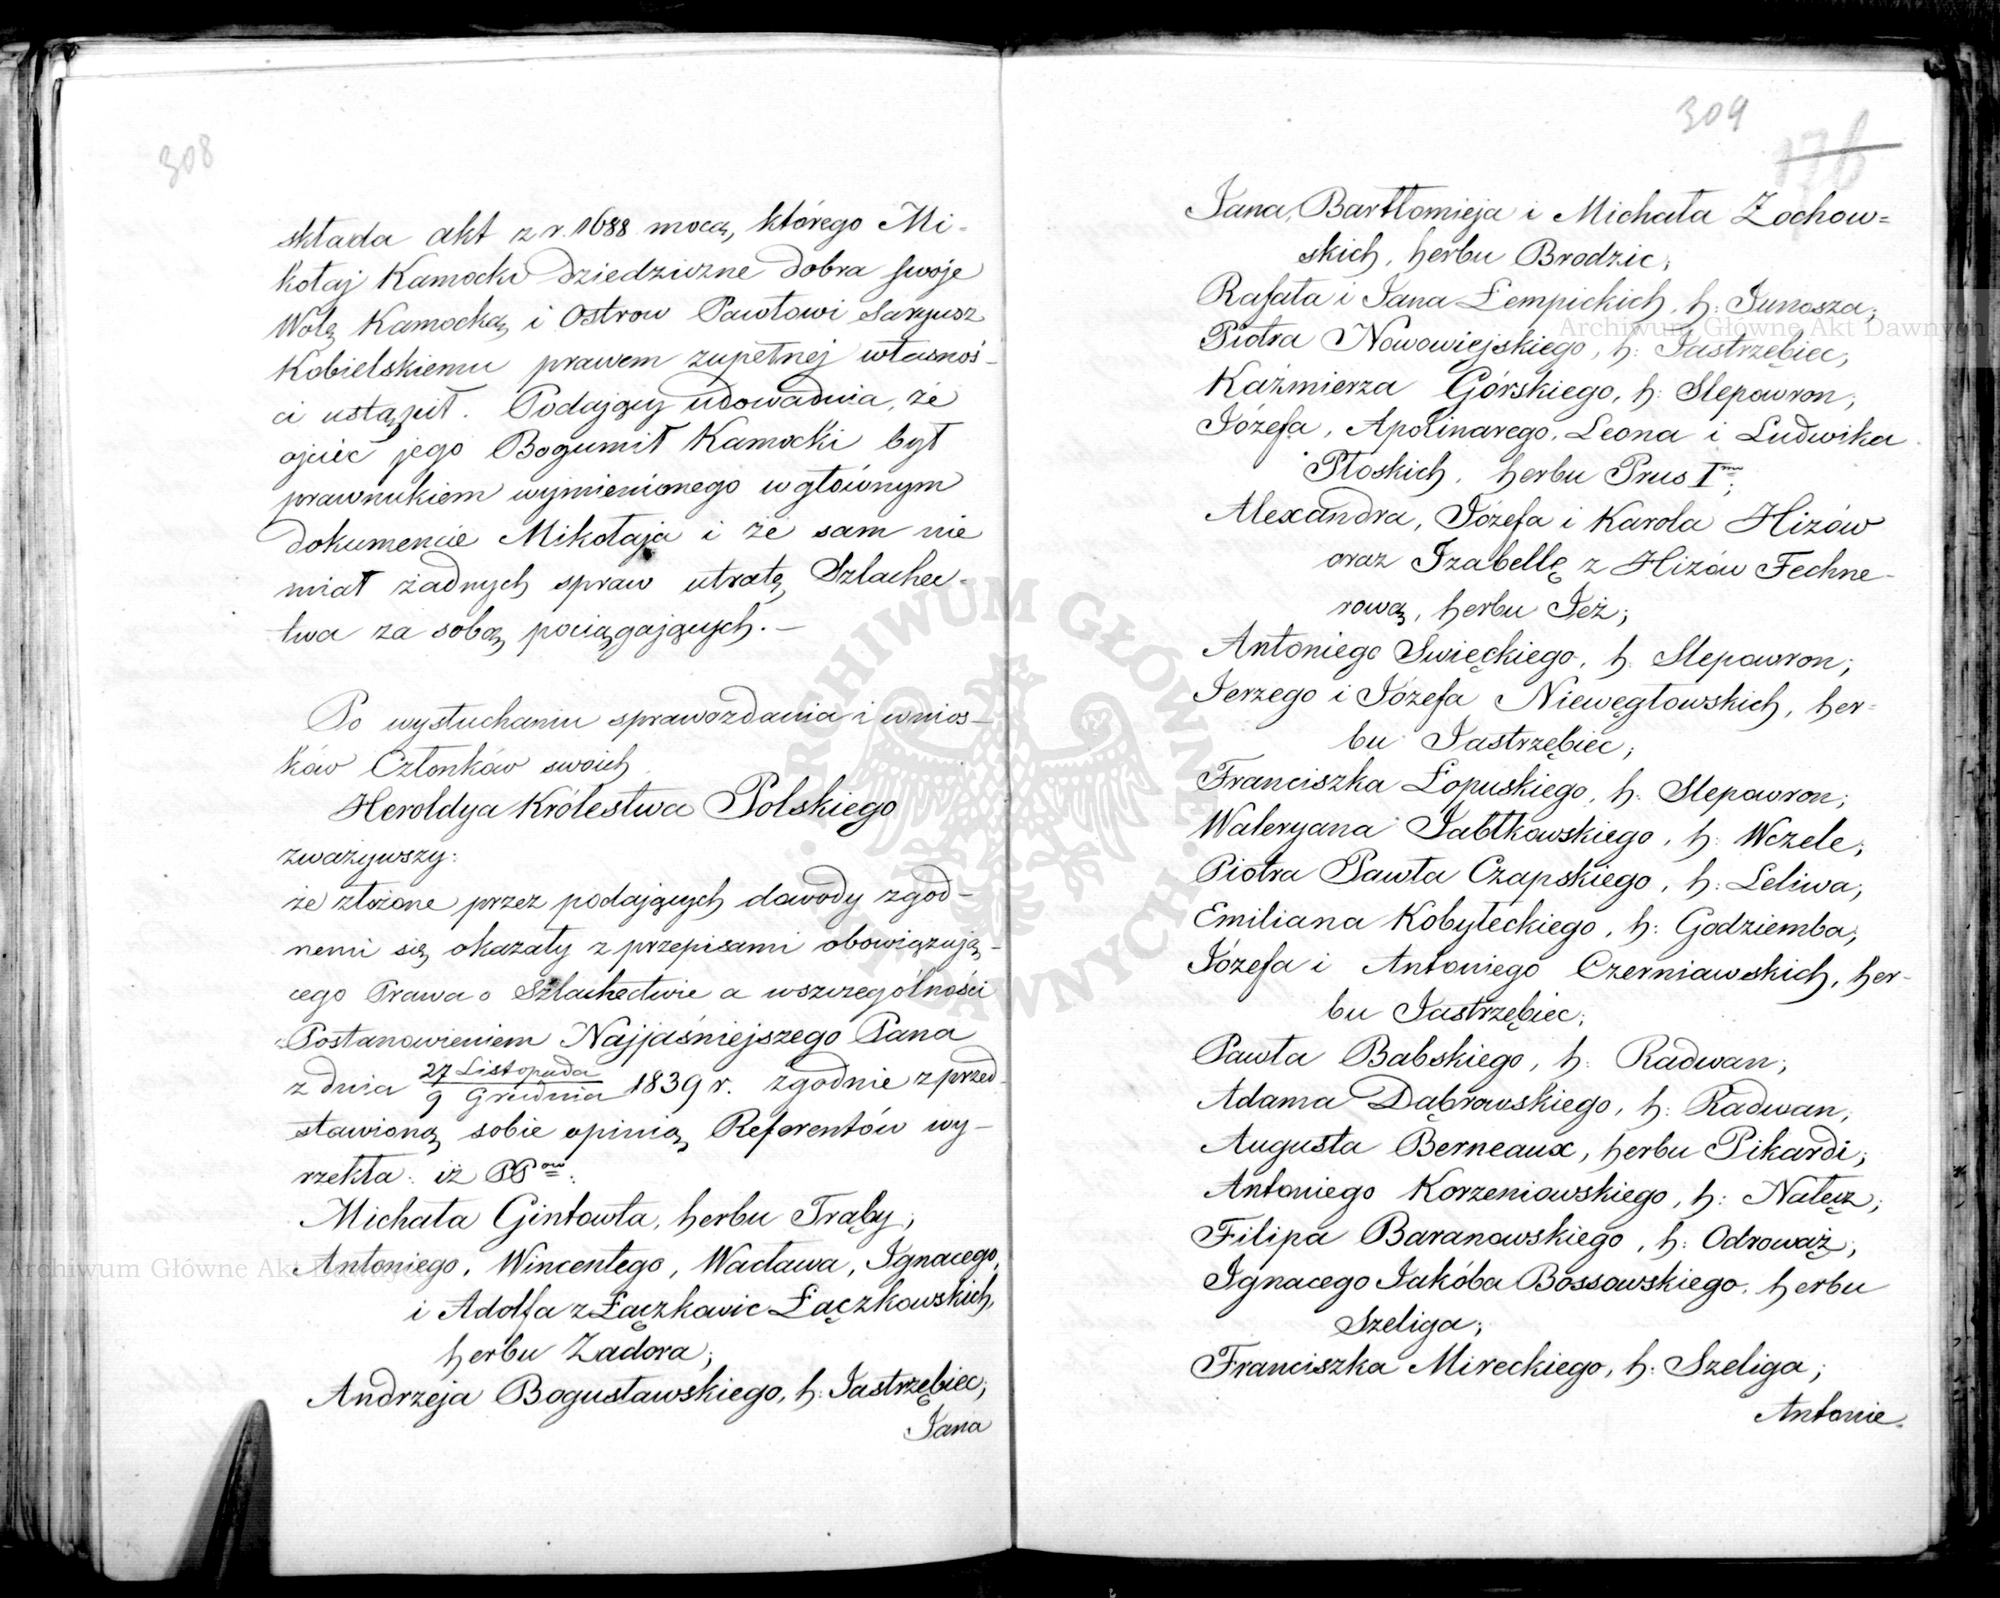 308
składa akt z r. 1688 mocą, którego Mi-
kołaj Kamocki dziedziczne dobra swoje
Wolę Kamocką i Ostrow Pawłowi Saryusz
Kobielskiemu prawem zupełnej własnoś-
ci ustąpił. Podający udowadnia, że
ojciec jego Bogumił Kamocki był
prawnukiem wymienionego w głównym
dokumencie Mikołaja i że sam nie
miał żadnych spraw utratę Szlachec-
twa za sobą pociągających. —
Po wysłuchaniu sprawozdania i wnios-
ków Członków swoich
Heroldya Królestwa Polskiego
zważywszy:
że złożone przez podających dowody zgod-
nemi się okazały z przepisami obowiązują-
cego Prawa o Szlachectwie a wszczególności
Postanowieniem Najjaśniejszego Pana
z dnia 27 Listopada / 9 Grudnia 1839 r. zgodnie z przed-
stawioną sobie opinią Referentów wy-
rzekła: iż PPow:
Michała Gintowta, herbu Trąby;
Antoniego, Wincentego, Wacława, Ignacego,
i Adolfa z Łączkowic Łączkowskich,
herbu Zadora;
Andrzeja Bogusławskiego, h: Jastrzębiec;
Jana
309
176
Jana, Bartłomieja i Michała Zochow=
skich, herbu Brodzic;
Rafała i Jana Łempickich, h: Junosza;
Piotra Nowowiejskiego, h: Jastrzębiec;
Kaźmierza Górskiego, h: Slepowron;
Józefa, Apolinarego, Leona i Ludwika
Płoskich, herbu Prus Imo;
Alexandra, Józefa i Karola Hizów
oraz Izabellę z Hizów Fechne-
rową, herbu Jeż;
Antoniego Swięckiego, h: Slepowron;
Jerzego i Józefa Niewęgłowskich, her=
bu Jastrzębiec;
Franciszka Łopuskiego, h: Slepowron;
Waleryana Jabłkowskiego, h: Wczele;
Piotra Pawła Czapskiego, h: Leliwa;
Emiliana Kobyłeckiego, h: Godziemba;
Józefa i Antoniego Czerniawskich, her-
bu Jastrzębiec;
Pawła Babskiego, h: Radwan;
Adama Dąbrowskiego, h: Radwan;
Augusta Berneaux, herbu Pikardi;
Antoniego Korzeniowskiego, h: Nałęcz;
Filipa Baranowskiego, h: Odrowąż;
Ignacego Jakóba Bossowskiego, herbu
Szeliga;
Franciszka Mireckiego, h: Szeliga;
Antonie-
Archiwum Główne Akt Dawnych
Archiwum Główne Akt Dawnych
ARCHIWUM GŁÓWNE AKT DAWNYCH